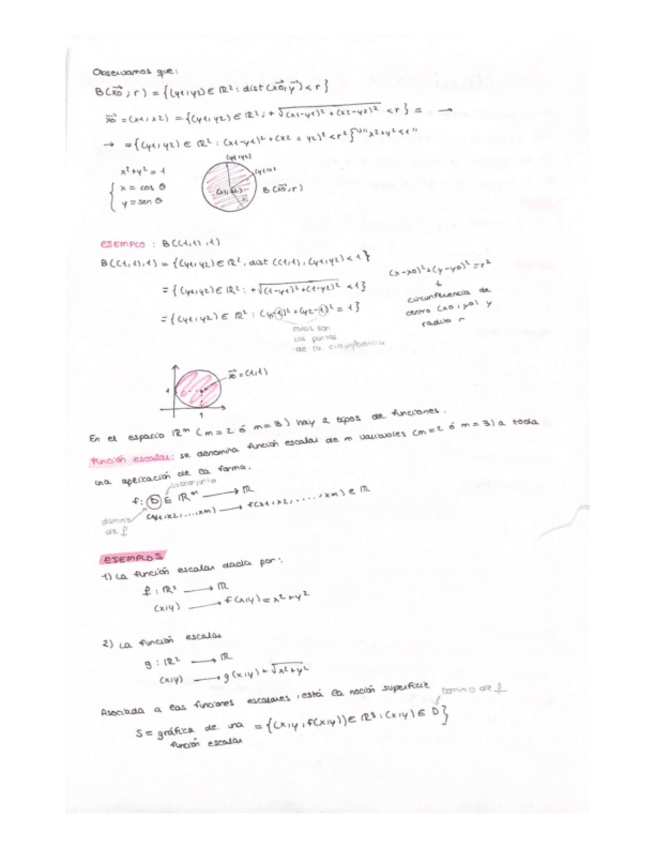 Observamos que:
B(x⃗0; r) = {(y1,y2) ∈ ℝ²: dist(x⃗0,y⃗) < r}
x⃗0 = (x1,x2) = {(y1,y2) ∈ ℝ²; +√(x1-y1)² + (x2-y2)² < r} = →
→ = {(y1,y2) ∈ ℝ² : (x1-y1)² + (x2 - y2)² < r²} "x²+y²<1"
x²+y² = 1
x = cos θ
y = sen θ
(y1,y2)
(x1,x2)
B(x⃗0,r)
EJEMPLO : B((1,1),1)
B((1,1),1) = {(y1,y2) ∈ ℝ², dist (1,1), (y1,y2) < 1}
= {(y1,y2) ∈ ℝ² : +√(1-y1)²+(1-y2)² < 1}
= {(y1,y2) ∈ ℝ² : (y1-1)² + (y2-1)² = 1}
estos son
los puntos
de la circunferencia
(x-x0)²+(y-y0)² = r²
↓
circunferencia de
centro (x0,y0) y
radio r
x⃗0 = (1,1)
1
1
En el espacio ℝᵐ (m=2 ó m=3) hay 2 tipos de funciones.
Función escalar: se denomina función escalar de m variables (m=2 ó m=3) a toda
una aplicación de la forma.
subconjunto
f: D ⊆ ℝᵐ → ℝ
(x1,x2,...,xm) → f(x1,x2,.....,xm) ∈ ℝ
dominio
de f
EJEMPLOS
1) La función escalar dada por:
f : ℝ² → ℝ
(x,y) → f(x,y) = x²+y²
2) La función escalar
g : ℝ² → ℝ
(x,y) → g(x,y) + √x²+y²
Asociada a las funciones escalares, está la noción superficie
domno de f
S = gráfica de una = {(x,y, f(x,y)) ∈ ℝ³ : (x,y) ∈ D}
función escalar